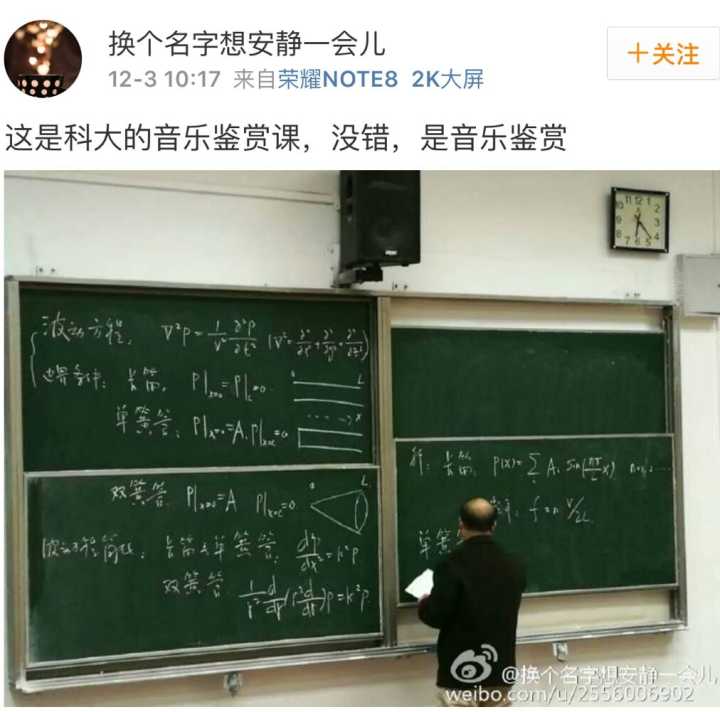 换个名字想安静一会儿
12-3 10:17 来自荣耀NOTE8 2K大屏
+关注
这是科大的音乐鉴赏课，没错，是音乐鉴赏
波动方程: ∇²P = 1/v² ∂²P/∂t² (∇² = ∂²/∂x² + ∂²/∂y² + ∂²/∂z²)
边界条件: 长笛, P|x=0 = P|L = 0
单簧管: P|x=0 = A, P|x=L = 0
双簧管 P|x=0 = A P|x=L = 0
波动方程简化: 长笛与单簧管 d²p/dx² = k²P
双簧管 1/r² d/dr (r² d/dr) P = k²P
解: 长笛, P(x) = Σ Aₙ Sin(nπ/L x)
f = n V/2L
单簧
11 12 1
10 2
9 3
8 4
7 6 5
@换个名字想安静一会儿
weibo.com/u/2556006902